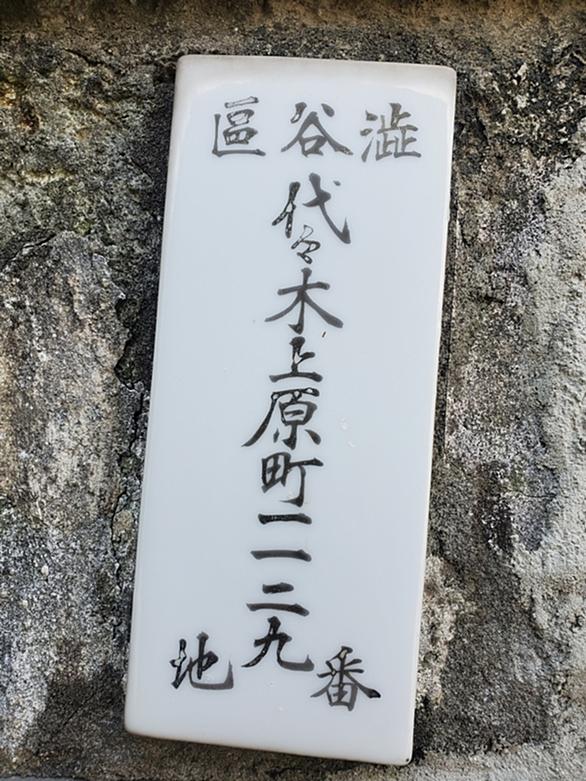 澁谷區
代々木上原町一一二九
番地